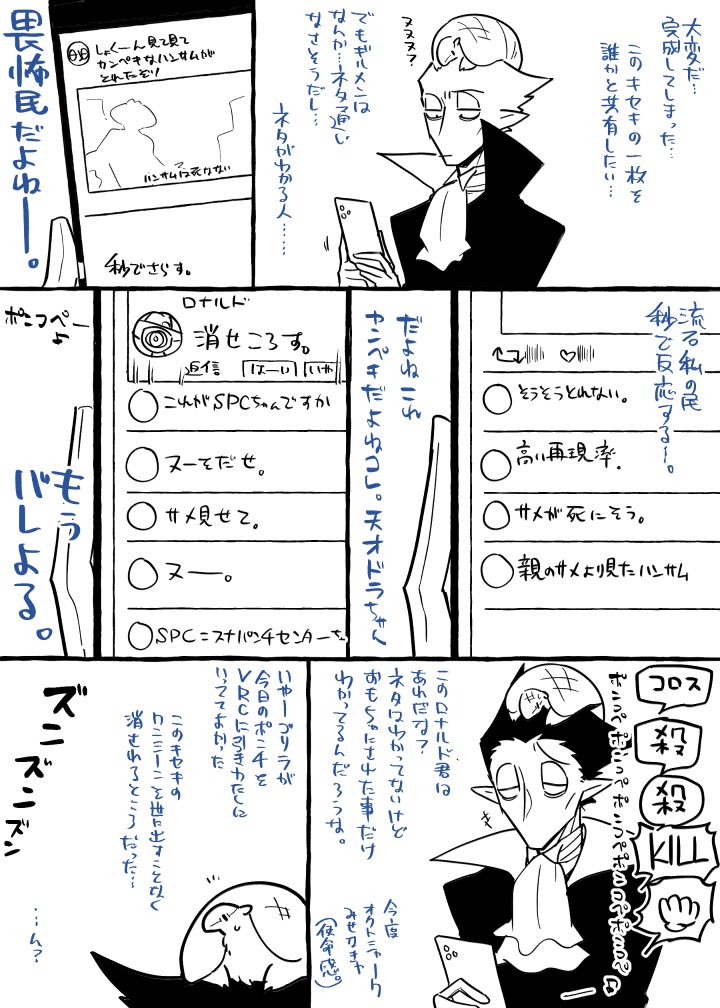 大変だ…
完成してしまった…
このキセキの一枚を
誰かと共有したい…
ヌヌヌ?
でもギルメンは
なんか…ネタ通い
なさそうだし…
ネタがわかる人……
しゃくーん見て見て
カンペキなハンサムが
とれたぞ!
ハンサムは死なない
秒でさらす。
畏怖民だよねー。
流石私の民
秒で反応する〜。
そうそうとれない。
高い再現率.
サメが死にそう。
親のサメより見たハンサム
だよねこれ
カンペキだよねコレ。天オドラちゃん
ロナルド
消せころす。
返信
はーい
いや
これがSPCちゃんですか
ヌーもだせ。
サメ見せて。
ヌー。
SPC=スナパンチセンターち
ポンコペー♪
もう
バレよる。
コロス
殺
殺
KILL
このロナルド君は
あれだな?
ネタはわかってないけど
おもちゃにされた事だけ
わかってるんだろうな。
今度
オクトニャーク
みせなきゃ
(使命感。)
いやーゴリラが
今日のポンチを
VRCに引きわたしに
いっててよかった
このキセキの
ワンシーンを世に出すことなく
消されるところだった…
…ん?
ズン
ズン
ズン